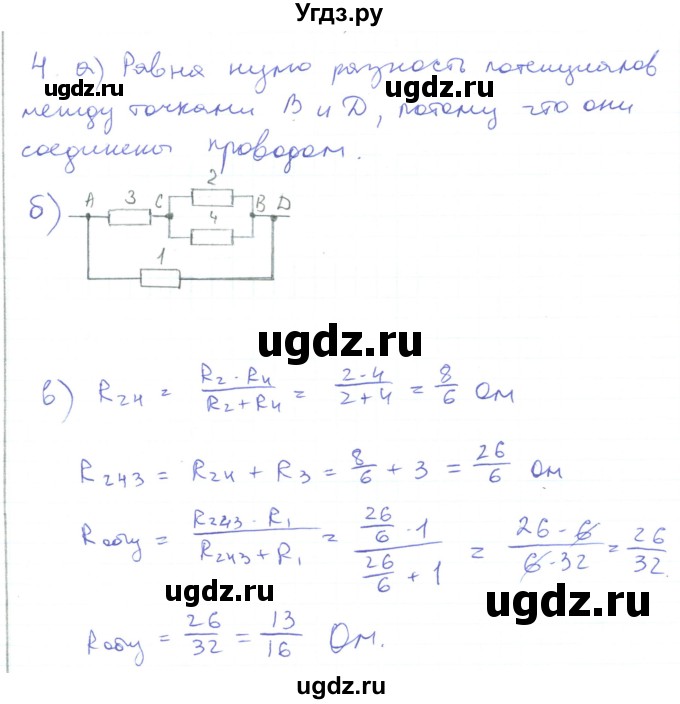 Угдз.ру
4. а) Равна нулю разность потенциалов
ugdz.ru ugdz.ru
между точками B и D, потому что они
соединены проводом.
б) A 3 C 2 B D
4
1
ugdz.ru
в) R24 = R2 · R4 / R2 + R4 = 2 · 4 / 2 + 4 = 8/6 Ом
R243 = R24 + R3 = 8/6 + 3 = 26/6 Ом
Rобщ = R243 · R1 / R243 + R1 = 26/6 · 1 / 26/6 + 1 = 26 · 6 / 6 · 32 = 26/32
ugdz.ru ugdz.ru
Rобщ = 26/32 = 13/16 Ом.
ugdz.ru
ugdz.ru